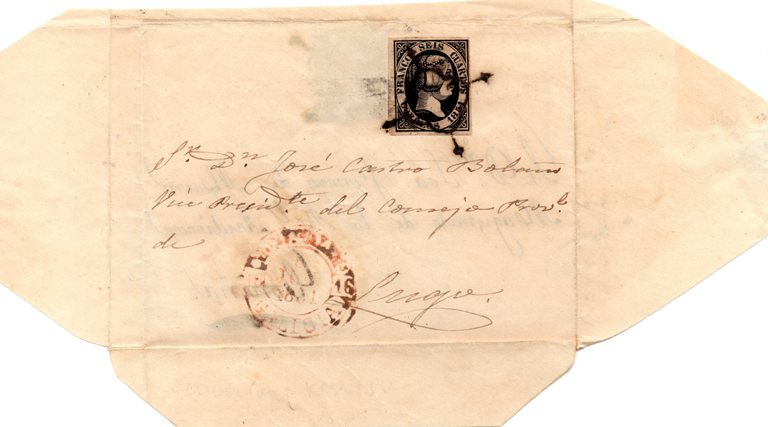 FRANCO SEIS CUARTOS 1851
Sr. Dn. José Castro Bolaño
Vice Presidte. del Consejo Provl.
de
Lugo.
1851